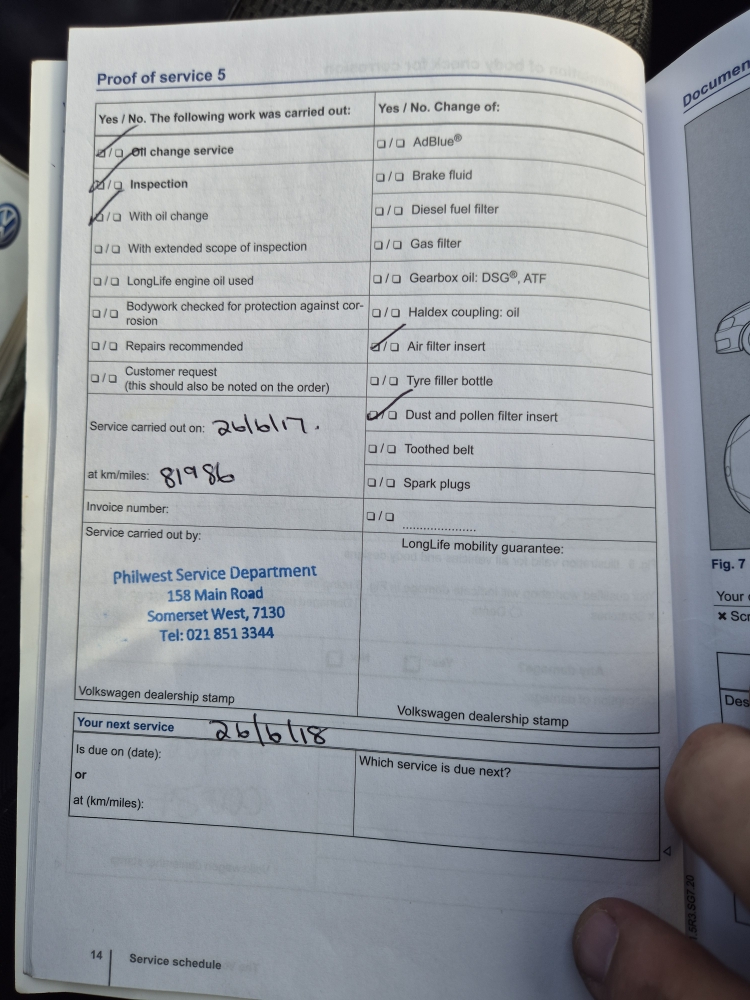 Proof of service 5
Yes / No. The following work was carried out:
☑ / ☐ Oil change service
☑ / ☐ Inspection
☑ / ☐ With oil change
☐ / ☐ With extended scope of inspection
☐ / ☐ LongLife engine oil used
☐ / ☐ Bodywork checked for protection against cor-
rosion
☐ / ☐ Repairs recommended
☐ / ☐ Customer request
(this should also be noted on the order)
Service carried out on: 26/6/17.
at km/miles: 81986
Invoice number:
Service carried out by:
Philwest Service Department
158 Main Road
Somerset West, 7130
Tel: 021 851 3344
Volkswagen dealership stamp
Yes / No. Change of:
☐ / ☐ AdBlue®
☐ / ☐ Brake fluid
☐ / ☐ Diesel fuel filter
☐ / ☐ Gas filter
☐ / ☐ Gearbox oil: DSG®, ATF
☐ / ☐ Haldex coupling: oil
☑ / ☐ Air filter insert
☐ / ☐ Tyre filler bottle
☑ / ☐ Dust and pollen filter insert
☐ / ☐ Toothed belt
☐ / ☐ Spark plugs
☐ / ☐ .....................
LongLife mobility guarantee:
Volkswagen dealership stamp
Your next service 26/6/18
Is due on (date):
or
at (km/miles):
Which service is due next?
14 Service schedule
Documen
Fig. 7
Your
× Scr
Des